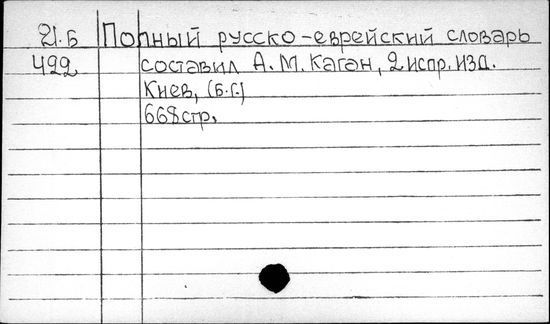 21.Б Полный русско-еврейский словарь
492 составил А. М. Каган, 2 испр. изд.
Киев, (б.г.)
668 стр.